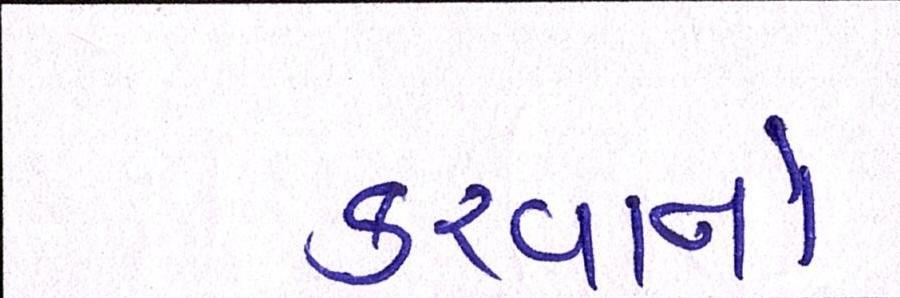 કરવાનો